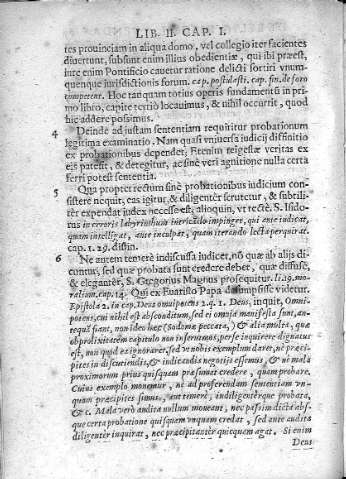 LIB. II. CAP. I.
tes prouinciam in aliqua domo, vel collegio iter facientes
diuertunt, subsunt enim illius obedientiæ, qui ibi præest,
iure enim Pontificio cauetur ratione delicti sortiri vnum-
quenque iurisdictionis forum. cap. postulasti. cap. fin. de foro
competent. Hoc tanquam totius operis fundamentũ in pri-
mo libro, capite tertio locauimus, & nihil occurrit, quod
hic addere possimus.
4 Deinde ad iustam sententiam requiritur probationum
legitima examinatio. Nam quasi vniuersa iudicij diffinitio
ex probationibus dependet. Etenim rei gestæ veritas ex
eis patesit, & detegitur, ac sine veri agnitione nulla certa
ferri potest sententia.
5 Qua propter rectum sinè probationibus iudicium con-
sistere nequit, eas igitur & diligenter scrutetur, & subtili-
ter expendat iudex necesse est, alioquin, vt rectè S. Isido-
rus in erroris labyrinthum inextricabilẽ impinget, qui ante iudicat,
quam intelligat, ante inculpat, quam iterando lecta perquirat.
cap. 1. 29. distin.
6 Ne autem temerè indiscussa iudicet, nõ quæ ab alijs di-
cuntur, sed quæ probata sunt credere debet, quæ diffusè,
& eleganter, S. Gregorius Magnus prosequitur. li. 19. mo-
ralium, cap. 14. Qui ex Euaristo Papa desumpsisse videtur.
Epistola 2. in cap. Deus omnipotens 2. q. 1. Deus, inquit, Omni-
potens, cui nihil est absconditum, sed ei omnia manifesta sunt, an-
tequã fiant, non ideo hæc (Sodomæ peccata,) & alia multa, quæ
ob prolixitatem capitulo non inserumus, per se inquirere dignatus
est, non quod ea ignoraret, sed vt nobis exemplum daret, ne præci-
pites in discutiendis, & iudicandis negotijs essemus, & ne mala
proximorum prius quisquam præsumat credere, quam probare.
Cuius exemplo monemur, ne ad proferendam sententiam vn-
quam præcipites simus, aut temerè, indiligenterque probata,
& c. Mala verò audita nullum moueant, nec passim dicta abs-
que certa probatione quisquam vnquam credat, sed ante audita
diligenter inquirat, nec præcipitanter quicquam agat. Si enim
Deus